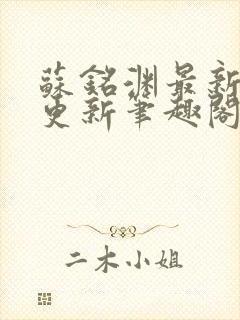 蘇銘淵最新
更新筆趣閣
二木小姐